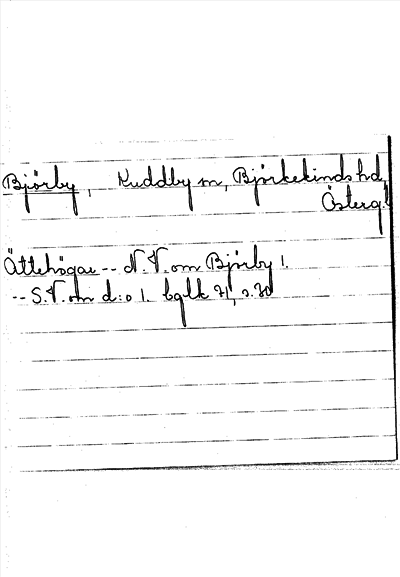 Björby, Kuddby sn, Björkekinds hd,
Österg.
Ättehögar -- N.V. om Björby 1.
-- S.V. om d:o 1. bglk 71, s. 70